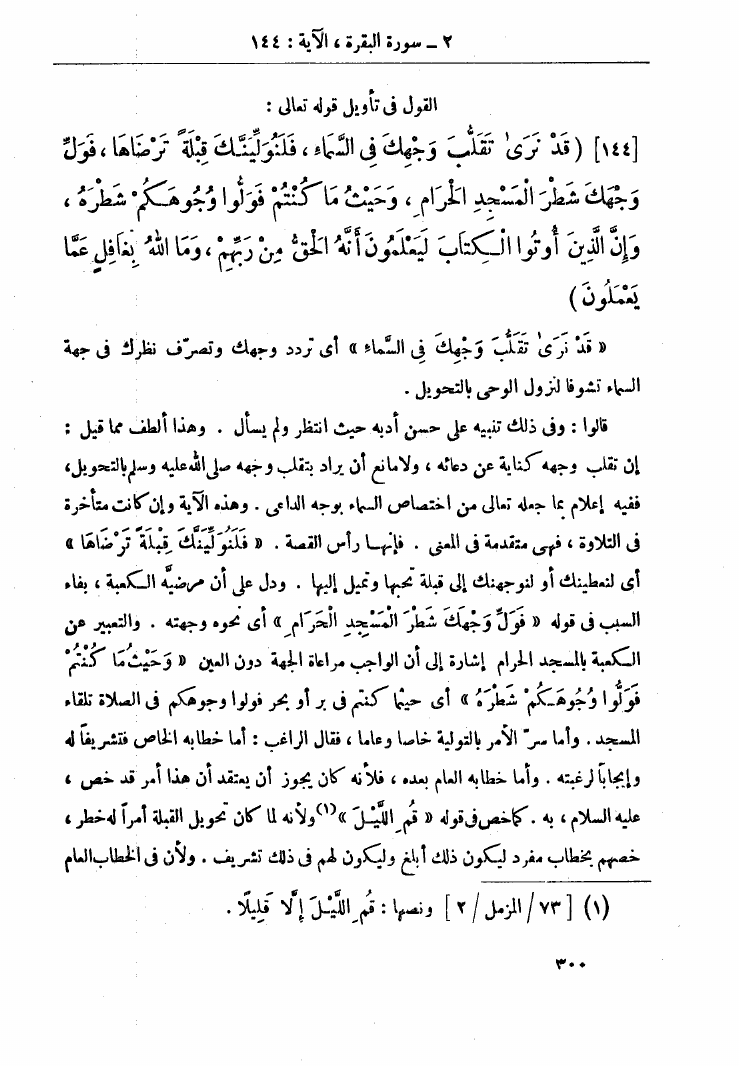 ٢ ــ سورة البقرة ، الآية : ١٤٤
القول فى تأويل قوله تعالى :
[١٤٤] ( قَدْ نَرَىٰ تَقَلُّبَ وَجْهِكَ فِى السَّمَاءِ ، فَلَنُوَلِّيَنَّكَ قِبْلَةً تَرْضَاهَا ، فَوَلِّ
وَجْهَكَ شَطْرَ الْمَسْجِدِ الْحَرَامِ ، وَحَيْثُ مَا كُنْتُمْ فَوَلُّوا وُجُوهَكُمْ شَطْرَهُ ،
وَإِنَّ الَّذِينَ أُوتُوا الْكِتَابَ لَيَعْلَمُونَ أَنَّهُ الْحَقُّ مِنْ رَبِّهِمْ ، وَمَا اللهُ بِغَافِلٍ عَمَّا
يَعْمَلُونَ )
« قَدْ نَرَىٰ تَقَلُّبَ وَجْهِكَ فِى السَّمَاءِ » أى تردد وجهك وتصرّف نظرك فى جهة
السماء تشوفا لنزول الوحى بالتحويل .
قالوا : وفى ذلك تنبيه على حسن أدبه حيث انتظر ولم يسأل . وهذا ألطف مما قيل :
إن تقلب وجهه كناية عن دعائه ، ولا مانع أن يراد بتقلب وجهه صلى الله عليه وسلم بالتحويل،
ففيه إعلام بما جعله تعالى من اختصاص السماء بوجه الداعى . وهذه الآية وإن كانت متأخرة
فى التلاوة ، فهى متقدمة فى المعنى . فإنهـا رأس القصة . « فَلَنُوَلِّيَنَّكَ قِبْلَةً تَرْضَاهَا »
أى لنعطينك أو لنوجهنك إلى قبلة تحبها وتميل إليها . ودل على أن مرضيَّه الكعبة ، بفاء
السبب فى قوله « فَوَلِّ وَجْهَكَ شَطْرَ الْمَسْجِدِ الْحَرَامِ » أى نحوه وجهته . والتعبير عن
الكعبة بالمسجد الحرام إشارة إلى أن الواجب مراعاة الجهة دون العين « وَحَيْثُ مَا كُنْتُمْ
فَوَلُّوا وُجُوهَكُمْ شَطْرَهُ » أى حيثما كنتم فى بر أو بحر فولوا وجوهكم فى الصلاة تلقاء
المسجد . وأما سرّ الأمر بالتولية خاصا وعاما ، فقال الراغب : أما خطابه الخاص فتشريفاً له
وإيجاباً لرغبته . وأما خطابه العام بعده ، فلأنه كان يجوز أن يعتقد أن هذا أمر قد خص ،
عليه السلام ، به . كما خص فى قوله « قُمِ اللَّيْـلَ »(١) ولأنه لما كان تحويل القبلة أمراً له خطر ،
خصهم بخطاب مفرد ليكون ذلك أبلغ وليكون لهم فى ذلك تشريف . ولأن فى الخطاب العام
(١) [ ٧٣ / المزمل / ٢ ] ونصها : قُمِ اللَّيْـلَ إِلَّا قَلِيلًا .
٣٠٠